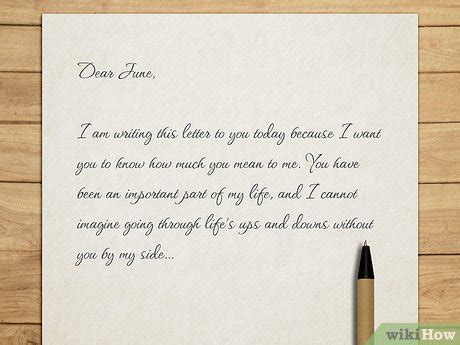 Dear June,
I am writing this letter to you today because I want
you to know how much you mean to me. You have
been an important part of my life, and I cannot
imagine going through life's ups and downs without
you by my side...
wikiHow